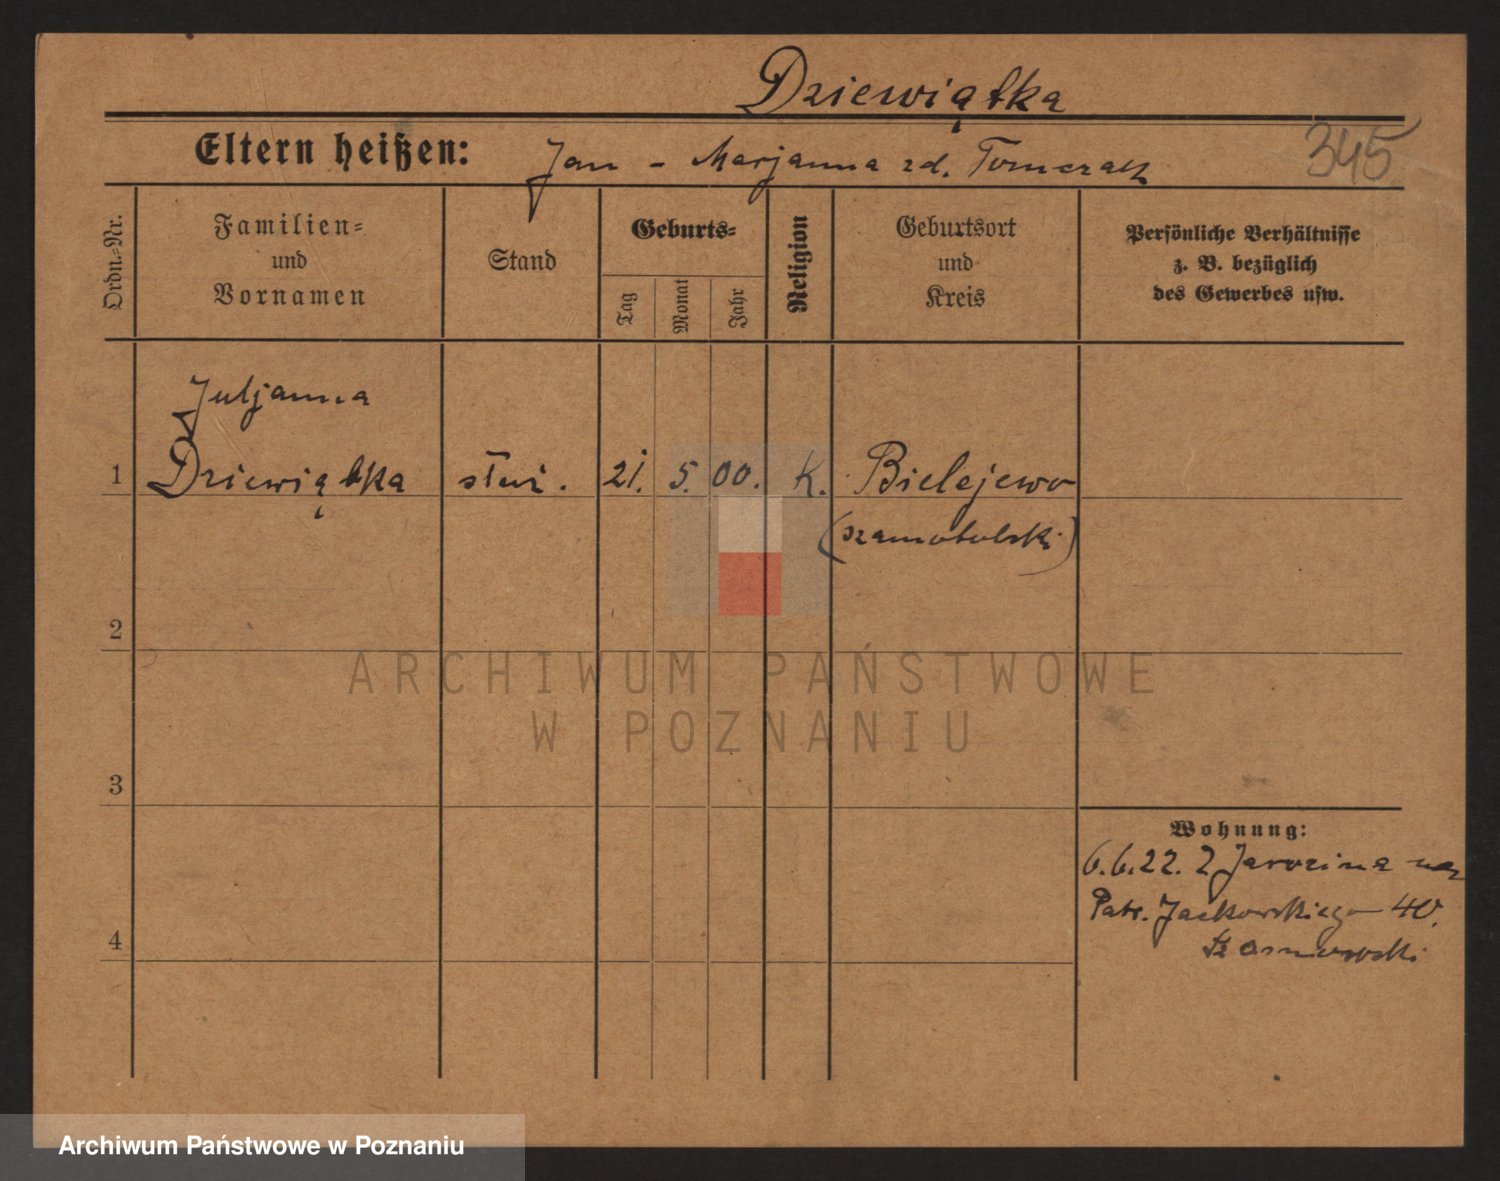 Dziewiątka
Eltern heißen: Jan - Marjanna zd. Tomczak
345
Ordn.-Nr.
Familien-
und
Vornamen
Stand
Geburts-
Tag
Monat
Jahr
Religion
Geburtsort
und
Kreis
Persönliche Verhältnisse
z. B. bezüglich
des Gewerbes usw.
Juljanna
1 Dziewiątka służ. 21. 5. 00. K. Bielejewo
(szamotulski)
2
ARCHIWUM PAŃSTWOWE
W POZNANIU
3
Wohnung:
6.6.22. Z Jarocina na
Patr. Jackowskiego 40.
4
Archiwum Państwowe w Poznaniu